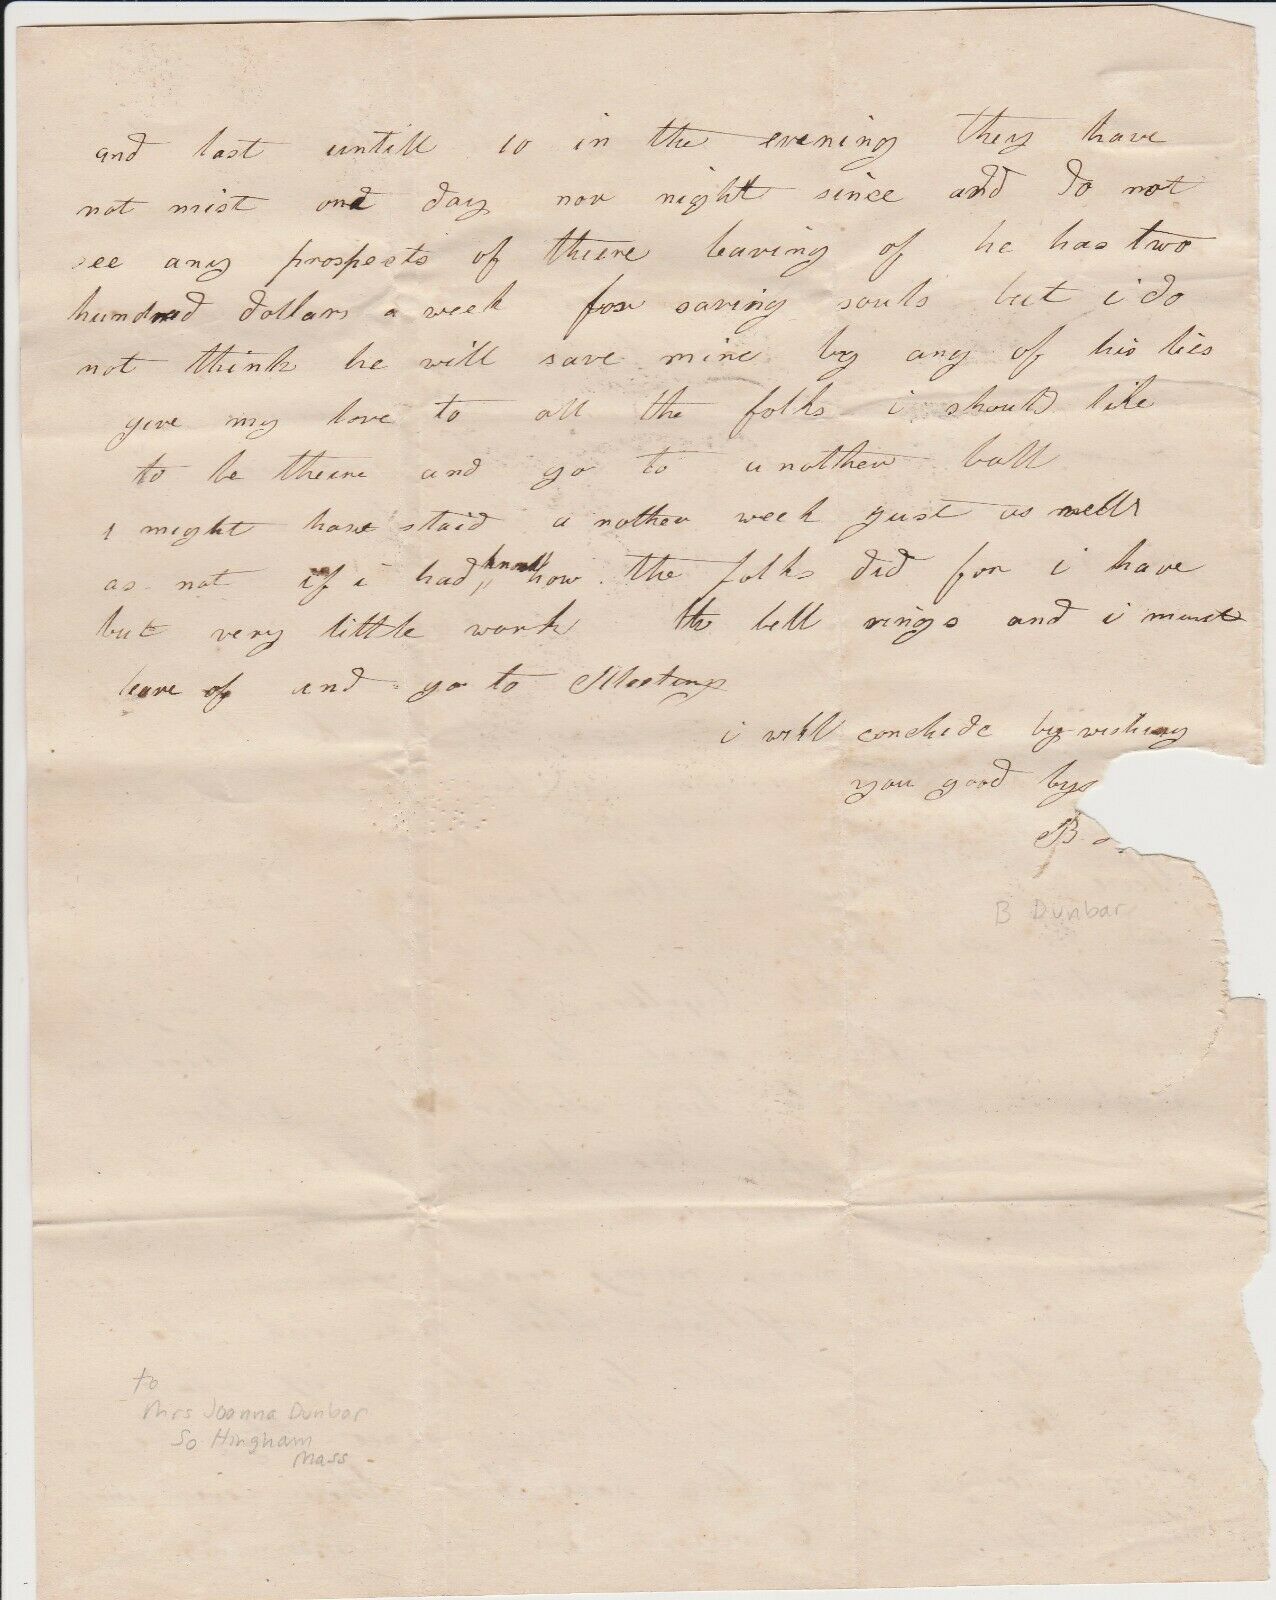 and last untill 10 in the evening they have
not mist one day nor night since and do not
see any prospects of theire leaving of he has two
hundred dollars a week for saving souls but i do
not think he will save mine by any of his lies
give my love to all the folks i should like
to be theire and go to a nother ball
i might have staid a nother week just as well
as not if i had know how the folks did for i have
but very little work the bell rings and i must
leave of and go to Meeting
i will conclude by wishing
you good by
B
B Dunbar
to
Mrs Joanna Dunbar
So Hingham
Mass